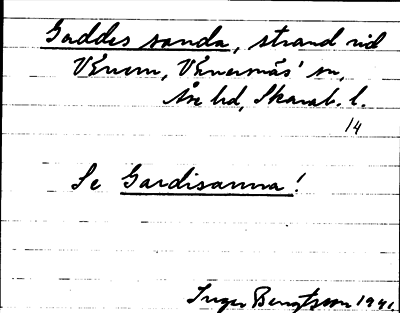 Gaddes sanda, strand vid
Vänern, Vänersnäs' sn,
Åse hd, Skarab. l.
14
Se Gardisanna!
Inger Bengtsson 1941.